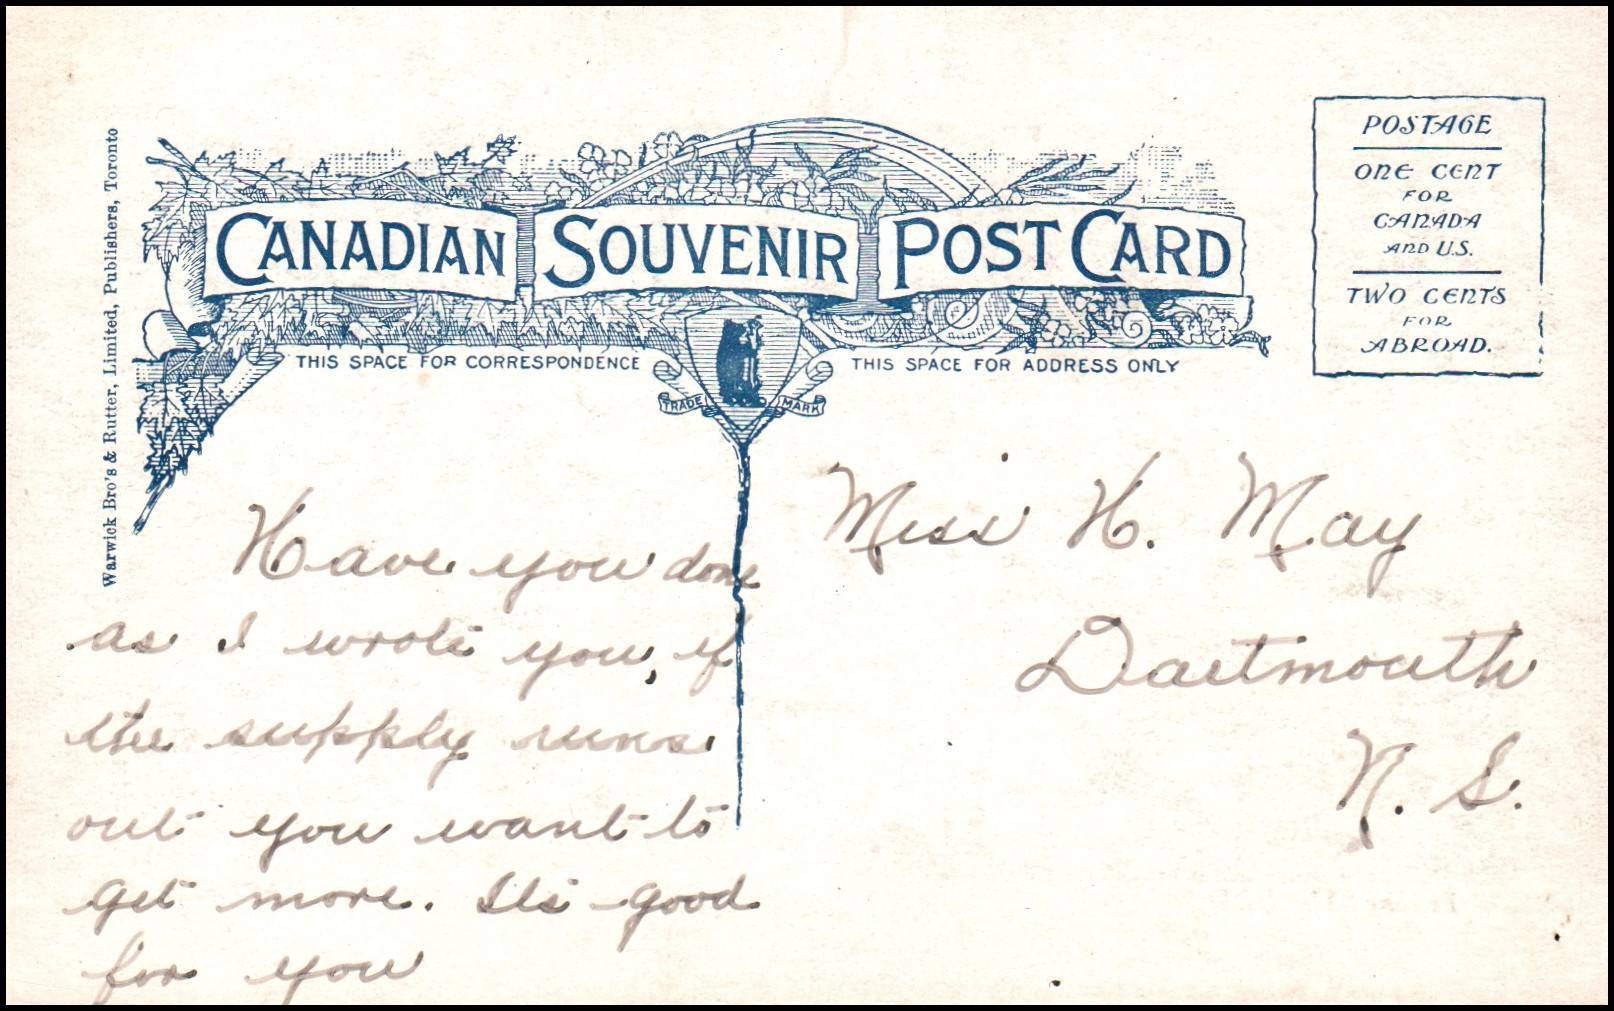 Warwick Bro's & Rutter, Limited, Publishers, Toronto
CANADIAN SOUVENIR POST CARD
THIS SPACE FOR CORRESPONDENCE
THIS SPACE FOR ADDRESS ONLY
TRADE MARK
POSTAGE
ONE CENT
FOR
CANADA
AND U.S.
TWO CENTS
FOR
ABROAD.
Have you done
as I wrote you, if
the supply runs
out you want to
get more. Its good
for you
Miss H. May
Dartmouth
N. S.